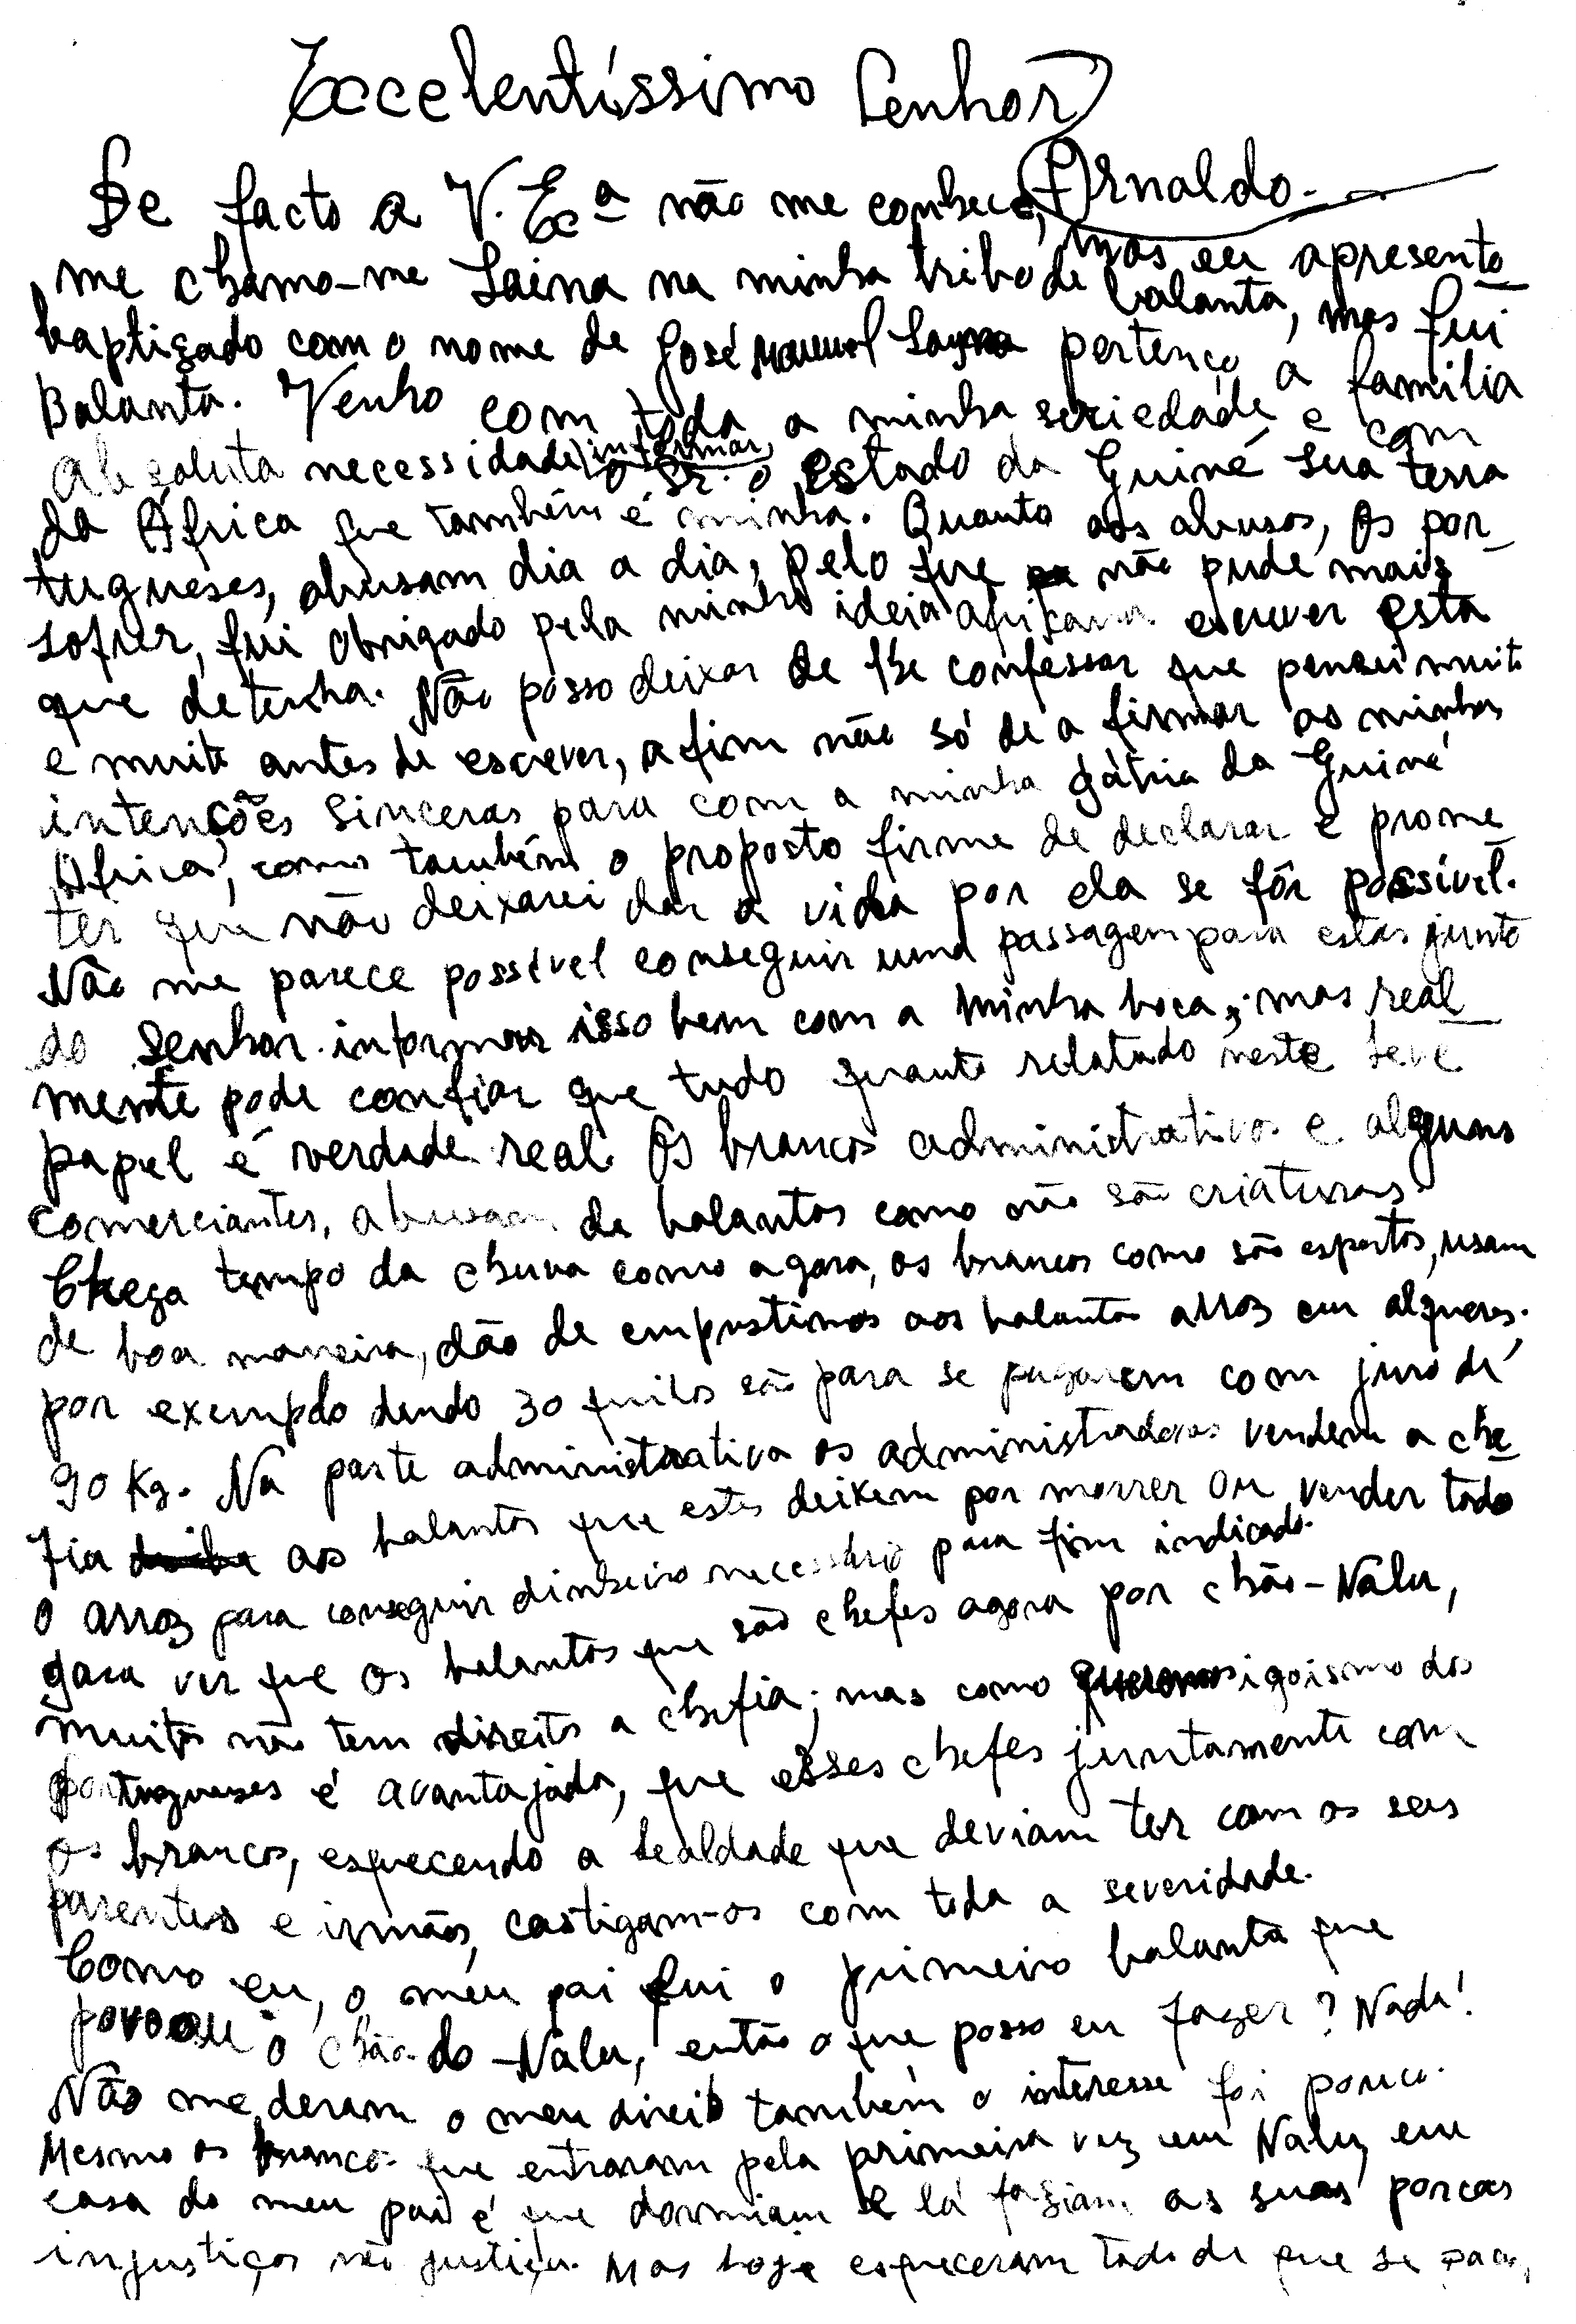 Excelentíssimo Senhor
Arnaldo.
De facto a V. Exª não me conhece, mas eu apresento
me chamo-me Saina na minha tribo de balanta, mas fui
baptizado com o nome de José Manuel pertenço a família
Balanta. Venho com toda a minha seriedade e com
absoluta necessidade informar o Sr. o estado da Guiné sua terra
da África que também é minha. Quanto aos abusos, os por-
tugueses, abusam dia a dia, pelo que não pude mais
sofrer, fui obrigado pela minha ideia africana escrever esta
que detenha. Não posso deixar de lhe confessar que pensei muito
e muito antes de escrever, a fim não só de a firmar as minhas
intenções sinceras para com a minha pátria da Guiné
África, como também o proposto firme de declarar e prome
ter que não deixarei dar a vida por ela se fôr possível.
Não me parece possível conseguir uma passagem para estar junto
do Senhor informar isso bem com a minha boca; mas real-
mente pode confiar que tudo quanto relatado neste
papel é verdade real. Os brancos administrativos e alguns
comerciantes, abusam de balantas como não são criaturas.
Chega tempo da chuva como agora, os brancos como são espertos, usam
de boa maneira, dão de emprestimos aos balantas arroz em alqueres.
por exemplo dendo 30 quilos são para se pagarem com juro de
90 Kg. Na parte administrativa os administradores vendem a che-
fia aos balantas que estes deixem por morrer ou vender todo
o arroz para conseguir dinheiro necessário para fim indicado.
para ver que os balantas que são chefes agora por chão-Nalu,
muitos não tem direito a chefia; mas como igoismo dos
portugueses é avantajada, que esses chefes juntamente com
os brancos, esquecendo a lealdade que deviam ter com os seus
parentes e irmãos, castigam-os com toda a severidade.
Como eu, o meu pai fui o primeiro balanta que
povoou o chão do Nalu, então o que posso eu fazer? Nada!
Não me deram o meu direito também o interesse foi pouco.
Mesmo os brancos que entraram pela primeira vez em Nalu, em
casa do meu pai é que dormiam e lá faziam as suas porcas
injustiças não justiça. Mas hoje esqueceram tudo de que se